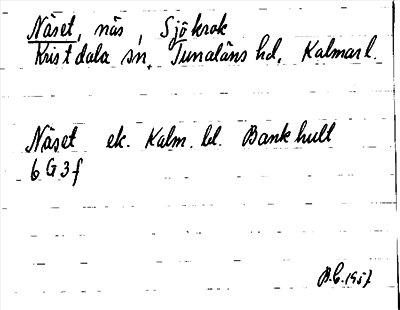 Näset, näs, Sjökrok
Kristdala sn, Tunaläns hd, Kalmar l.
Näset ek. Kalm. bl. Bankhult
6 G 3 f